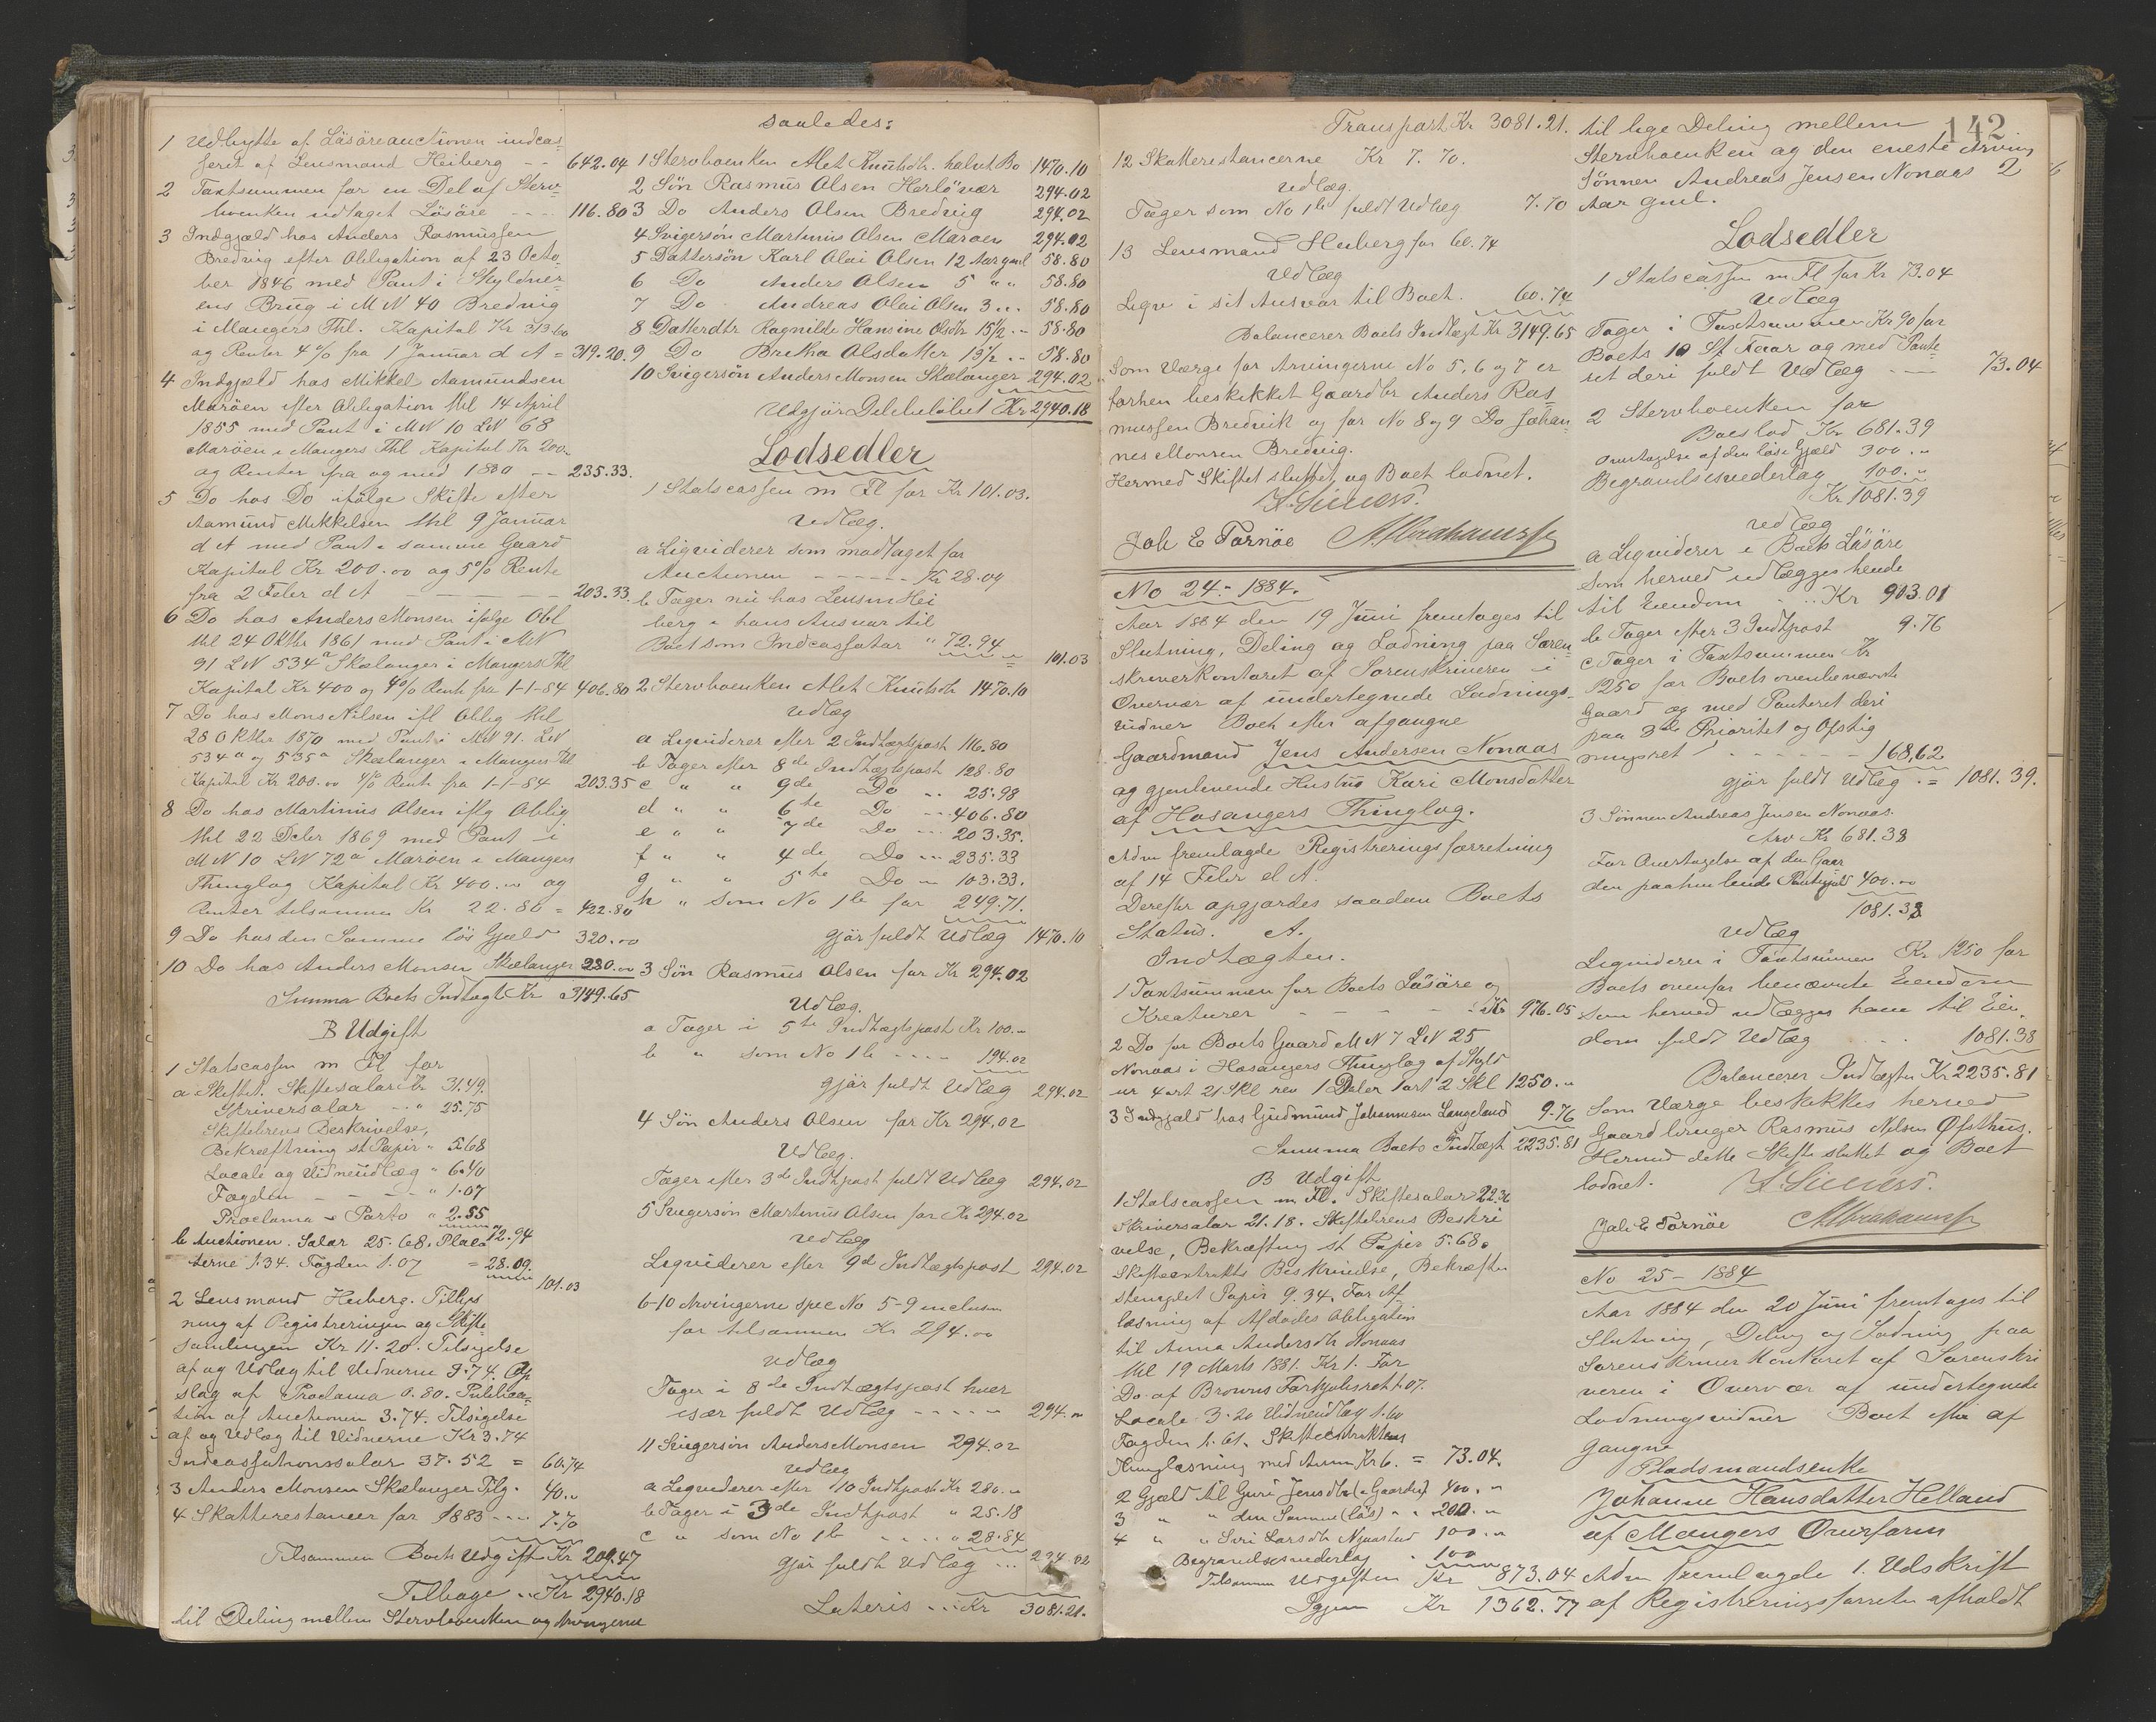 1 Udbytte af Løsøreauctionen indcas-
seret af Lensmand Heiberg - - 642.04
2 Taxtsummen for en Del af Sterv-
boenken udtaget Løsøre - - - 116.80
3 Indgjæld hos Anders Rasmussen
Bredvig efter Obligation af 23 Octo-
ber 1846 med Pant i Skyldner-
ens Brug i M N 40 Bredvig
i Mangers Thl. Kapital Kr 313.60
og Renter 4% fra 1 Januar d A = 319.20.
4 Indgjæld hos Mikkel Aamundsen
Marøen efter Obligation thl 14 April
1855 med Pant i M N 10 L N 68
Marøen i Mangers Thl Kapital Kr 200..
og Renter fra og med 1880 - - 235.33.
5 Do hos Do ifølge Skifte efter
Aamund Mikkelsen thl 9 Januar
d A med Pant i samme Gaard
Kapital Kr 200.00 og 5% Rente
fra 2 Feber d A - - - 203.33.
6 Do hos Anders Monsen ifølge Obl
thl 24 Oktbr 1861 med Pant i M N
91 L N 534a Skælanger i Mangers Thl
Kapital Kr 400 og 4% Rente fra 1-1-84 406.80
7 Do hos Mons Nilsen ifl Oblig thl
28 Oktbr 1870 med Pant i M N 91. L N
534a og 535a Skælanger i Mangers Thl
Kapital Kr 200.00 4% Rente fra 1-1-84 203.35
8 Do hos Martinus Olsen iflg Oblig
thl 22 Decbr 1869 med Pant i
M N 10 L N 72a Marøen i Mangers
Thinglag Kapital Kr 400.00 og
Renter tilsammen Kr 22.80 = 422.80
9 Do hos den Samme løs Gjæld 320.00
10 Do hos Anders Monsen Skælanger 280.00
Summa Boets Indtægt Kr 3149.65
B Udgift
1 Statscassen m Fl for
a Skiftet. Skiftesalar Kr 31.49.
Skriversalar - - " 25.75
Skiftebrevs Beskrivelse,
Bekræftning st Papir " 5.68
Locale og Vidneudlæg " 6.40
Fogden - - - " 1.07
Proclama - Porto " 2.55
72.94
b Auctionen. Salar 25.68. Placa-
terne 1.34. Fogden 1.07 = 28.09.
101.03
2 Lensmand Heiberg. Tillys
ning af Registreringen og Skifte-
samlingen Kr 11.20. Tilsigelse
af og Udlæg til Vidnerne 3.74. Op
slag af Proclama 0.80. Publica-
tion af Auctionen 3.74. Tilsigelse
af og Udlæg til Vidnerne Kr 3.74
Indcassationssalar 37.52 = 60.74
3 Anders Monsen Skælanger Tilg. 40..
4 Skatterestancer for 1883 - - - 7.70
Tilsammen Boets Udgift Kr 209.47
Tilbage .. Kr 2940.18
til Deling mellem Stervboenken og Arvingerne
saaledes:
1 Stervboenken Alet Knutsdtr. halvt Bo 1470.10
2 Søn Rasmus Olsen Herløvær 294.02
3 Do Anders Olsen Bredvig 294.02
4 Svigersøn Martinus Olsen Marøen 294.02
5 Dattersøn Karl Olai Olsen 12 Aar gml 58.80
6 Do Anders Olsen 5 " " 58.80
7 Do Andreas Olai Olsen 3 " " 58.80
8 Datterdtr Ragnilde Hansine Olsdtr 15½ " - 58.80
9 Do Bretha Olsdatter 13½ " - 58.80
10 Svigersøn Anders Monsen Skælanger 294.02
Udgjør Delebeløbet Kr 2940.18
Lodsedler
1 Statscassen m Fl for Kr 101.03.
Udlæg.
a Liqviderer som modtaget for
Auctionen - - - - - Kr 28.09
b Tager nu hos Lensm Hei
berg i hans Ansvar til
Boet som Indcassator " 72.94
= 101.03
2 Stervboenken Alet Knutsdtr 1470.10
Udlæg
a Liqviderer efter 2 Indtægtspost 116.80
b Tager efter 8de Indtægtspost 128.80
c " " 9de Do .. 25.98
d " " 6te Do ... 406.80
e " " 7de Do ... 203.35.
f " " 4de Do ... 235.33
g " " 5te Do .. 103.33.
h " som No 1 b for 249.71.
gjør fuldt Udlæg 1470.10
3 Søn Rasmus Olsen for Kr 294.02
Udlæg.
a Tager i 5te Indtægtspost Kr 100..
b " som No 1 b - - - - 194.02
gjør fuldt Udlæg 294.02
4 Søn Anders Olsen for Kr 294.02
Udlæg.
Tager efter 3de Indtpost fuldt Udlæg 294.02
5 Svigersøn Martinus Olsen for Kr 294.02
Udlæg
Liqviderer efter 9de Indtægtspost 294.02
6-10 Arvingerne spec No 5-9 inclusive
for tilsammen Kr 294.00
Udlæg
Tager i 8de Indtægtspost hver
især fuldt Udlæg - - - - - 294.00
11 Svigersøn Anders Monsen 294.02
Udlæg
a Liqviderer efter 10 Indtpost Kr 240..
b Tager i 3de Indtpost " 25.18
c " som No 1 b - - - - 28.84
gjør fuldt Udlæg ... 294.02
Lateris ... Kr 3081.21.
142.
Transport Kr 3081.21.
12 Skatterestancerne Kr 7.70.
Udlæg.
Tager som No 1 b fuldt Udlæg 7.70
13 Lensmand Heiberg for 60.74
Udlæg
Liqv i sit Ansvar til Boet. 60.74
Balancerer Boets Indtægt Kr 3149.65
Som Værge for Arvingerne No 5, 6 og 7 er
forhen beskikket Gaardbr Anders Ras-
mussen Bredvik og for No 8 og 9 Do Johan-
nes Monsen Bredvig.
Hermed Skiftet sluttet og Boet lodnet.
Joh E Tornøe
No 24 - 1884.
Aar 1884 den 19 Juni fremtages til
Slutning, Deling og Lodning paa Soren-
skriverkontoret af Sorenskriveren i
Overvær af undertegnede Lodnings-
vidner Boet efter afgangne
Gaardmand Jens Andersen Nonaas
og gjenlevende Hustru Kari Monsdatter
af Hosangers Thinglag.
Adm fremlagde Registreringsforretning
af 14 Febr d A.
Derefter opgjordes saadan Boets
Status. A.
Indtægten.
1 Taxtsummen for Boets Løsøre og
Kreaturer - - - - - Kr 976.05
2 Do for Boets Gaard M N 7 L N 25
Nonaas i Hosangers Thinglag af Skyld
ur 4 ort 21 Skl rev 1 Daler 1 ort 2 Skl 1250..
3 Indgjæld hos Gudmund Johannesen Langeland 9.76
Summa Boets Indtægt 2235.81
B Udgift
1 Statscassen m Fl. Skiftesalar 22.36
Skriversalar 21.18. Skiftebrevs Beskri
velse, Bekræftning st Papir 5.68.
Skifteextrakts Beskrivelse, Bekræftn
stemplet Papir 9.34. For Af-
læsning af Afdødes Obligation
til Anna Andersdtr Nonaas
thl 19 Marts 1881. Kr 1. For
Do af Browns Forkjøbsret 1.07.
Locale 3.20 Vidneudlæg 1.60
Fogden 1.61. Skifteextraktens
Thinglæsning med Anm Kr 6. = 73.04.
2 Gjæld til Guri Jensdtr (i Gaarden) 400.. "
3 " " den Samme (løs) " " 200.. "
4 " " Siri Larsdtr 100.. "
Begravelsesvederlag " 100
Tilsammen Udgiften Kr 873.04
Igjen Kr 1362.77
til lige Deling mellem
Stervboenken og den eneste Arving
Sønnen Andreas Jensen Nonaas 2
Aar gml.
Lodsedler
1 Statscassen m Fl for Kr 73.04
Udlæg
Tager i Taxtsummen Kr 90 for
Boets 10 St Faar og med Pante-
ret deri fuldt Udlæg - - 73.04
2 Stervboenken for
Boeslod Kr 681.39
Overtagelse af den løse Gjæld 300.. "
Begravelsesvederlag 100.. "
Kr 1081.39
Udlæg
a Liqviderer i Boets Løsøre
som herved udlægges hende
til Eiendom .. Kr 903.01
b Tager efter 3 Indtpost 9.76
c Tager i Taxtsummen Kr
1250 for Boets ovenbenævnte
Gaard og med Panteret deri
paa 3de Prioritet og Opstig
ningsret - - - - 168.62
gjør fuldt Udlæg .. = 1081.39.
3 Sønnen Andreas Jensen Nonaas.
Arv Kr 681.38
For Overtagelse af den Gaar
den paahvilende Pantegjæld 400.00
1081.38
Udlæg
Liqviderer i Taxtsummen Kr 1250 for
Boets ovenfor benævnte Eiendom
som herved udlægges ham til Eien-
dom fuldt Udlæg . . . 1081.38
Balancerer Indtægten Kr 2235.81
Som Værge beskikkes herved
Gaardbruger Rasmus Nilsen Øfsthus.
Hermed dette Skifte sluttet og Boet
lodnet.
Joh E Tornøe
No 25 - 1884
Aar 1884 den 20 Juni fremtages til
Slutning, Deling og Lodning paa
Sorenskriverkontoret af Sorenskri
veren i Overvær af undertegnede
Lodningsvidner Boet efter af
gangne
Pladsmandsenke
Johanne Hansdatter Helland
af Mangers Overform
Adm fremlagde 1. Udskrift
af Registreringsforretn afholdt